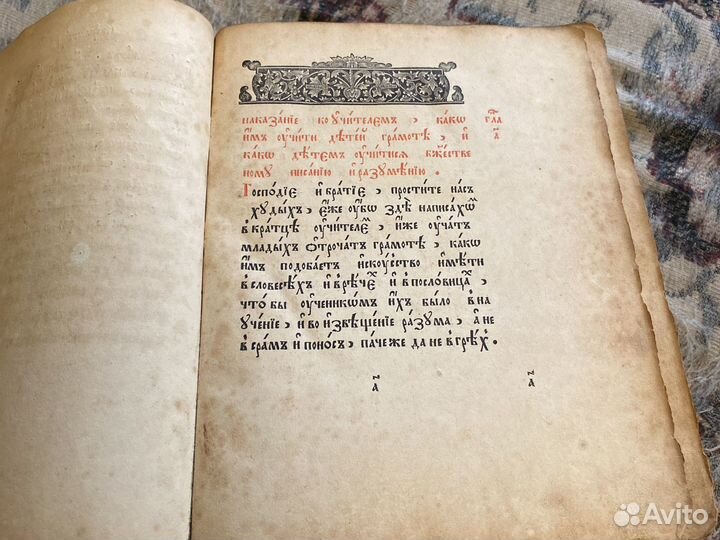 наказа́нїе ко ᲂу҆чи́телемъ, ка́кѡ гла
и҆̀мъ ᲂу҆чи́ти дѣте́й гра́мотѣ, и҆ а҃
ка́кѡ дѣ́темъ ᲂу҆чи́тисѧ бж҃е́стве
ному писа́нїю и҆ разꙋмѣ́нїю.
Госпо́дїе и҆ бра́тїе, прости́те на́съ
хꙋды́хъ, є҆́же ᲂу҆́бѡ здѣ̀ написа́хѡ
в кра́тцѣ ᲂу҆чи́телє, и҆̀же ᲂу҆ча́тъ
млады́хъ ѻ҆троча́тъ гра́мотѣ, ка́кѡ
и҆̀мъ подоба́етъ и҆скꙋ́сство и҆мѣ́ти
в слове́сѣхъ и҆ в рѣ́че и҆ в посло́вица
что́ бы ᲂу҆ченикѡ́мъ и҆́хъ бы́ло в на
ᲂу҆че́нїе, и҆ во и҆звѣще́нїе ра́зꙋма, а҆ не
в сра́мъ и҆ поно́съ, па́че же да не в грѣ́х.
а
а
Avito